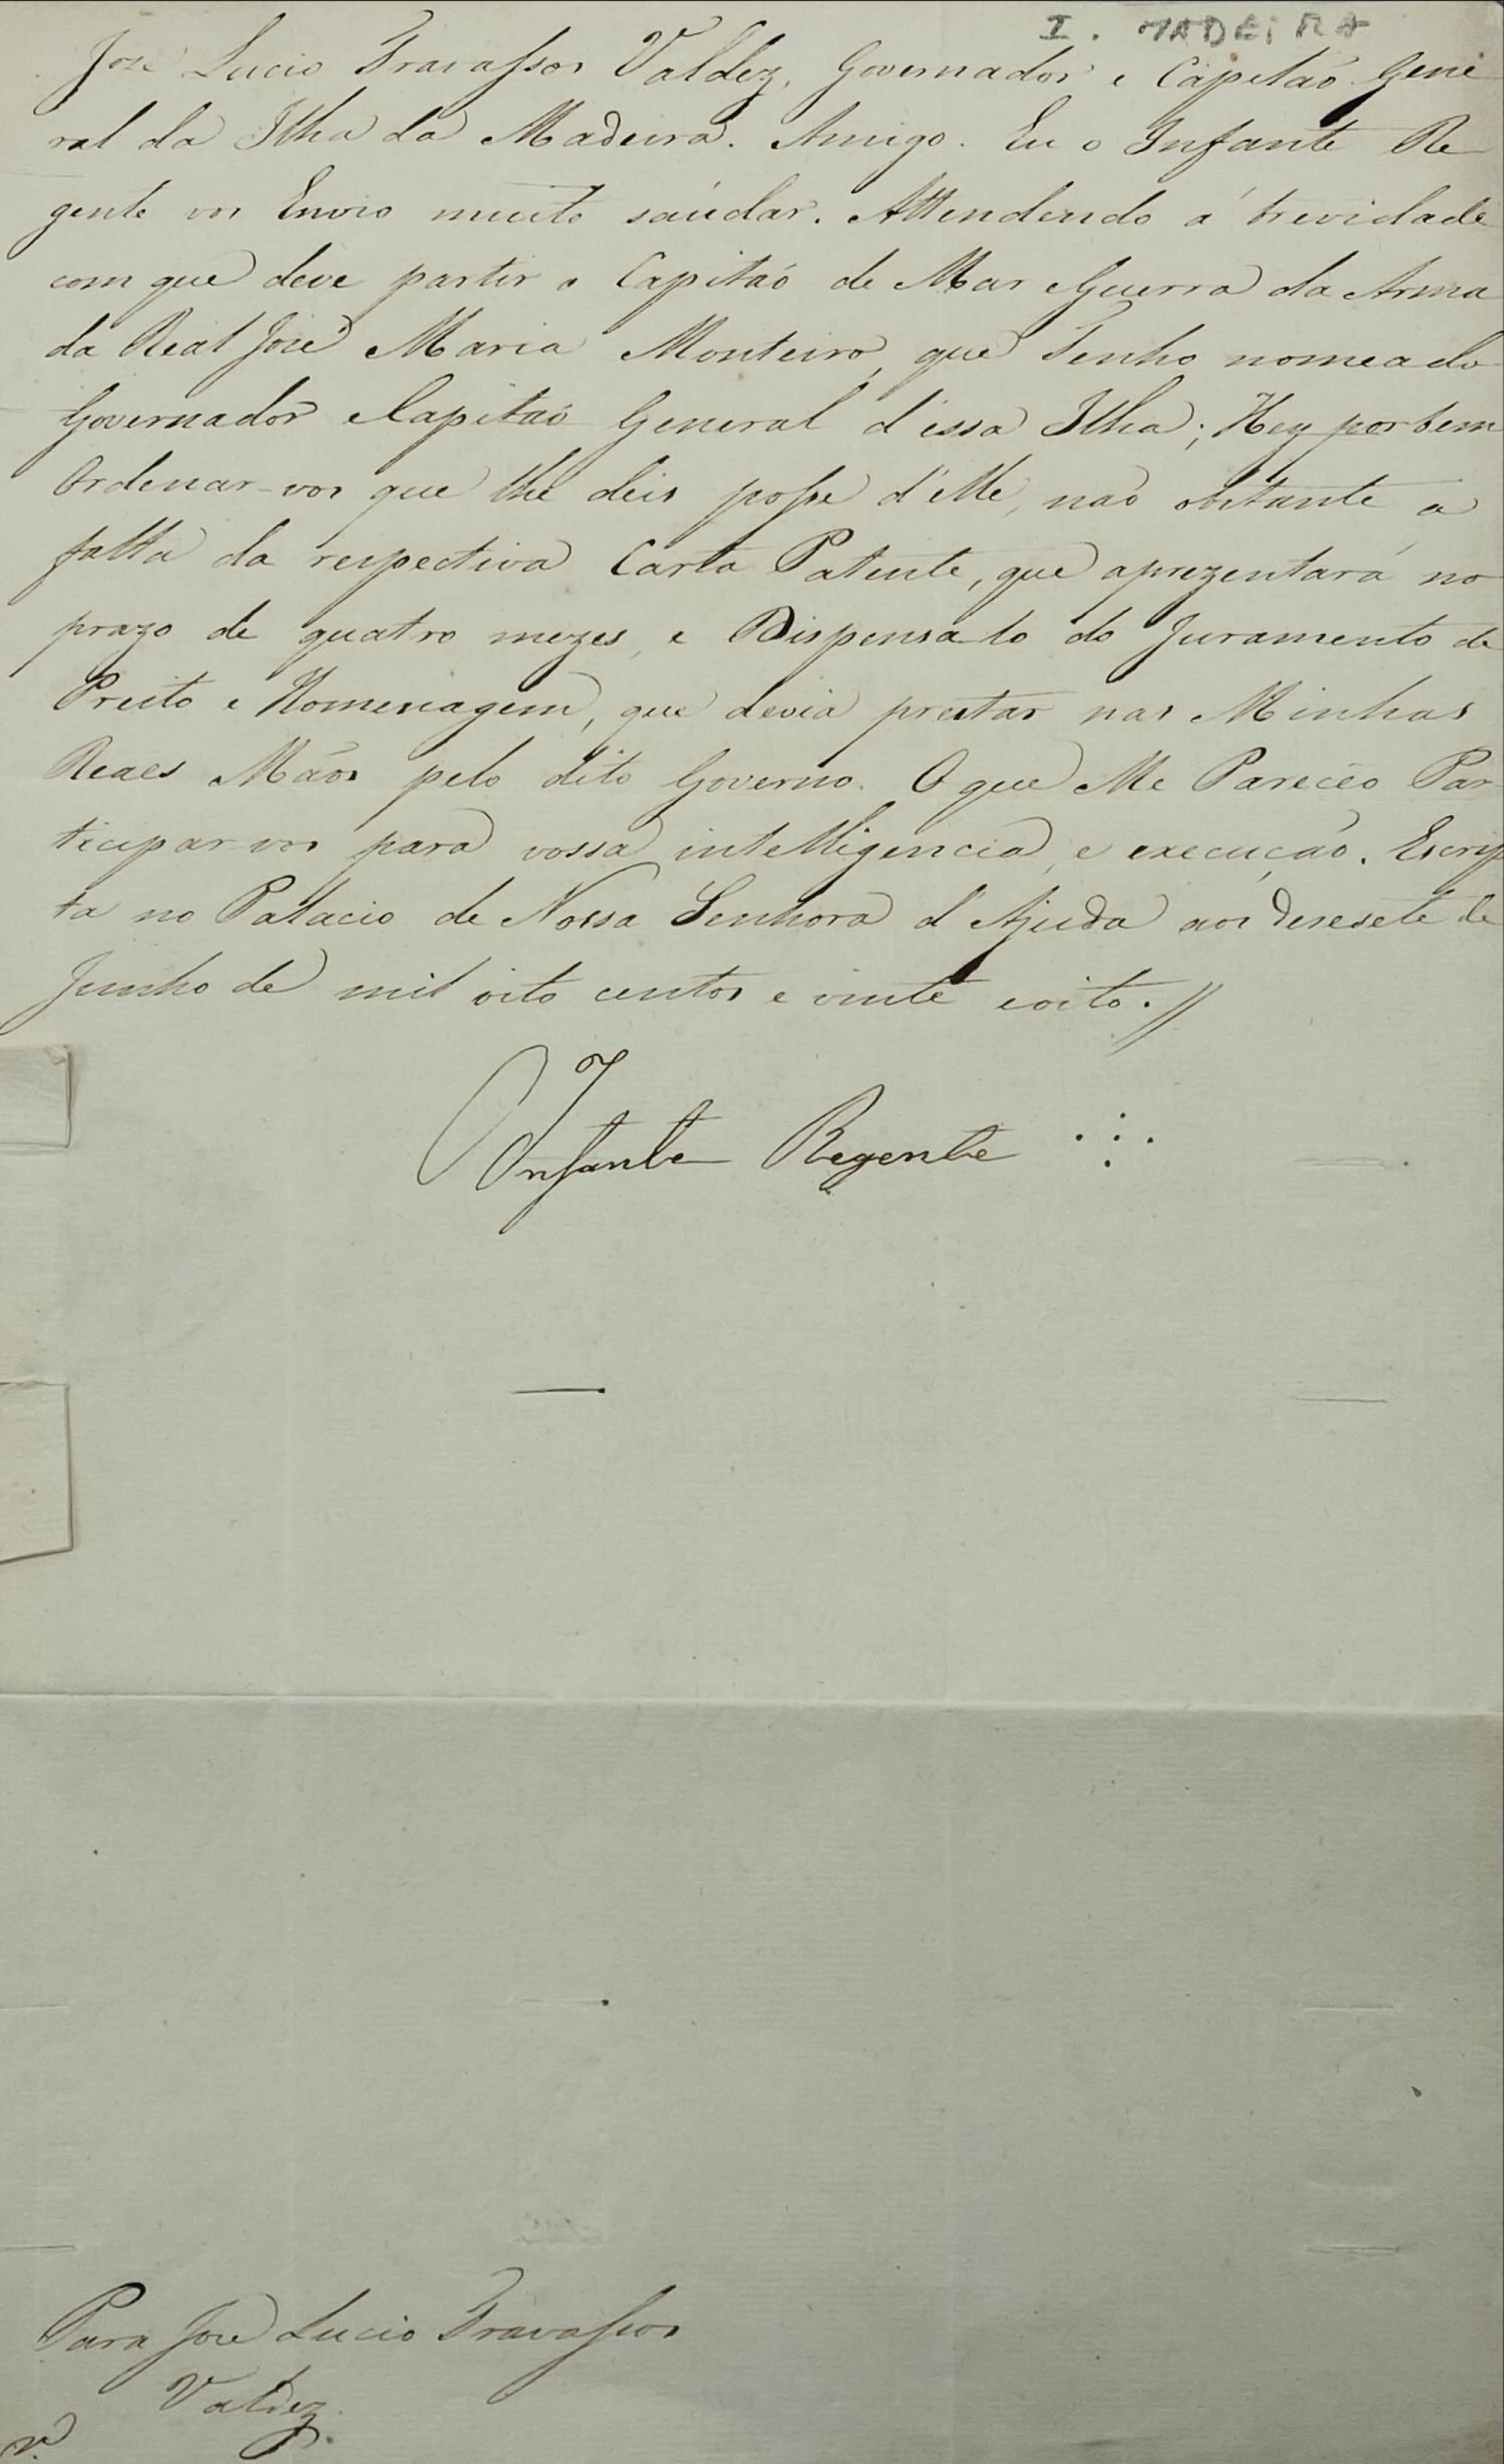 I. MADEIRA
José Lucio Travassos Valdez, Governador e Capitaõ Gene
ral da Ilha da Madeira. Amigo. Eu o Infante Re
gente vos Envio muito saúdar. Attendendo á brevidade
com que deve partir o Capitaõ de Mar eGuerra da Arma
da Real José Maria Monteiro, que Tenho nomeado
Governador eCapitaõ General d'essa Ilha; Hey por bem
Ordenar-vos que lhe deis posse d'elle, naõ obstante a
falta da respectiva Carta Patente, que aprezentará no
prazo de quatro mezes, e Dispensa-lo do Juramento de
Preito e Homenagem, que devia prestar nas Minhas
Reaes Mãos pelo dito Governo. O que Me Pareceo Par-
ticipar-vos para vossa intelligencia, e execuçaõ. Escrip
ta no Palacio de Nossa Senhora d'Ajuda aos desesete de
Junho de mil oito centos e vinte eoito.//
Infante Regente
Para José Lucio Travassos
Valdez.